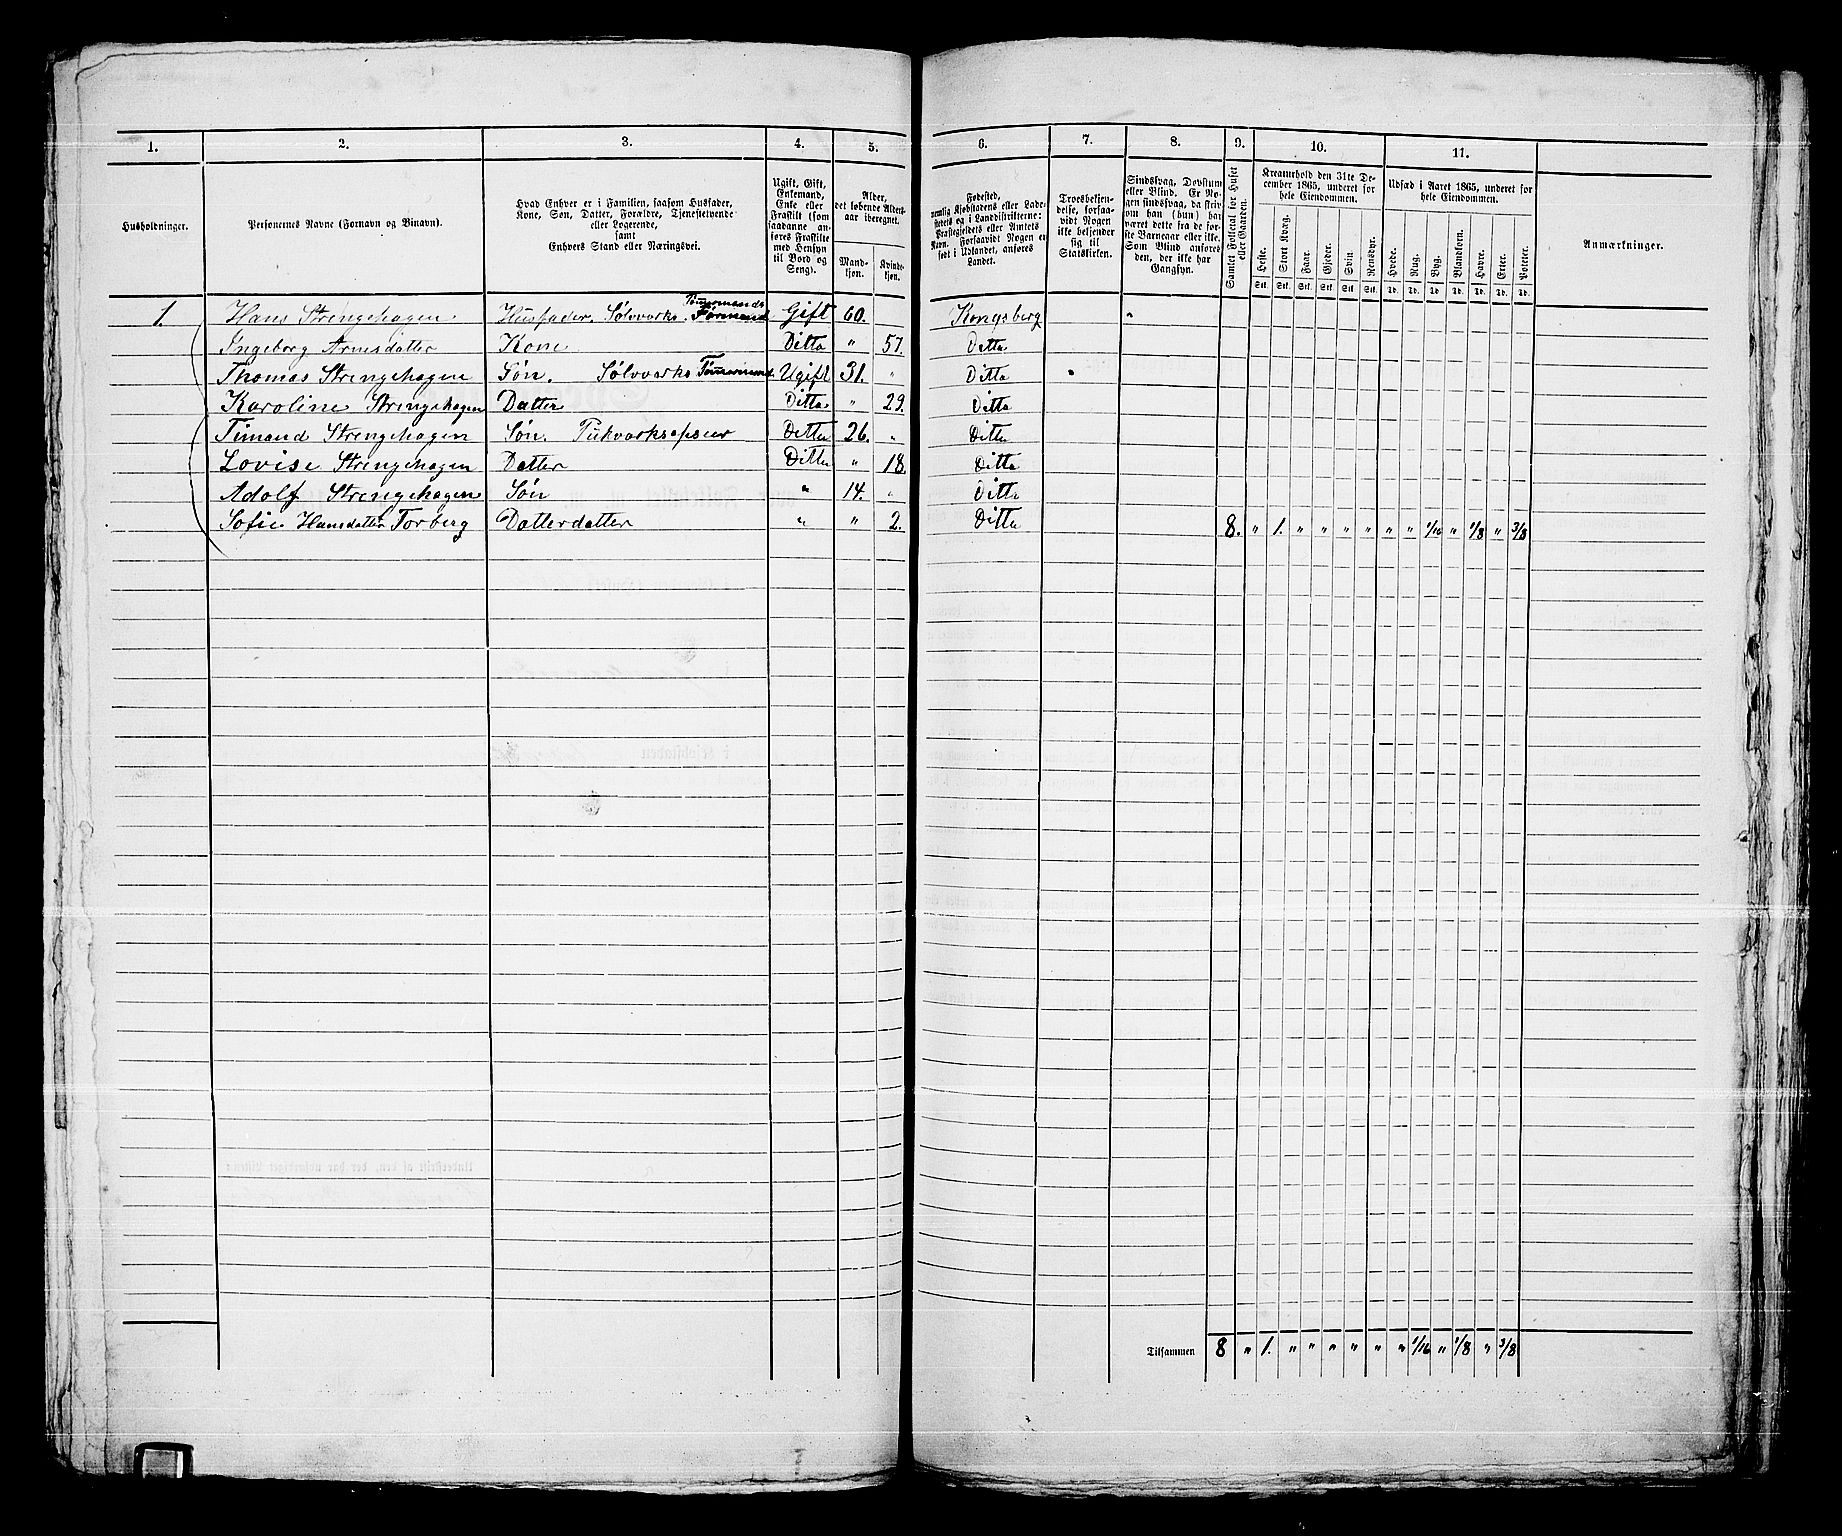 1. 2. 3. 4. 5. 6. 7. 8. 9. 10. 11.
Husholdninger.
Personernes Navne (Fornavn og Binavn).
Hvad Enhver er i Familien, saasom Husfader,
Kone, Søn, Datter, Forældre, Tjenestetyende
eller Logerende,
samt
Enhvers Stand eller Næringsvei.
Ugift, Gift,
Enkemand,
Enke eller
Fraskilt (som
saadanne an-
føres Fraskilte
med Hensyn
til Bord og
Seng).
Alder,
det løbende Alders-
aar iberegnet.
Mand-
kjøn.
Kvinde-
kjøn.
Fødested,
nemlig Kjøbstadens eller Lade-
stedets og i Landdistrikterne:
Præstegjeldets eller Amtets
Navn. Forsaavidt Nogen er
født i Udlandet, anføres
Landet.
Troesbekjen-
delse, forsaa-
vidt Nogen
ikke bekjender
sig til
Statskirken.
Sindssvag, Døvstum
eller Blind. Er No-
gen sindssvag, da skriv
om han (hun) har
været dette fra de før-
ste Barneaar eller ikke.
Som Blind anføres
den, der ikke har
Gangsyn.
Samlet Folketal for Huset
eller Gaarden.
Kreaturhold den 31te De-
cember 1865, underet for
hele Eiendommen.
Heste. Stort Kvæg. Faar. Gjeder. Svin. Rensdyr.
Stk. Stk. Stk. Stk. Stk. Stk.
Udsæd i Aaret 1865, underet for
hele Eiendommen.
Hvede. Rug. Byg. Blandkorn. Havre. Erter. Poteter.
Td. Td. Td. Td. Td. Td. Td.
Anmærkninger.
1. Hans Strengehagen Husfader. Sølvværks Tømmermands Formand Gift 60. Kongsberg "
Ingeborg Arnesdatter Kone Ditto " 57. Ditto
Thomas Strengehagen Søn. Sølvværks Tømmermand Ugift 31. " Ditto "
Karoline Strengehagen Datter Ditto " 29. Ditto
Timand Strengehagen Søn. Pukværksopseer Ditto 26. " Ditto
Lovise Strengehagen Datter Ditto " 18. Ditto
Adolf Strengehagen Søn " 14. " Ditto
Sofie Hansdatter Torberg Datterdatter " " 2. Ditto 8. " 1. " " " " " " 1/16 " 1/8 " 3/8
Tilsammen 8 " 1. " " " " " " 1/16 " 1/8 " 3/8